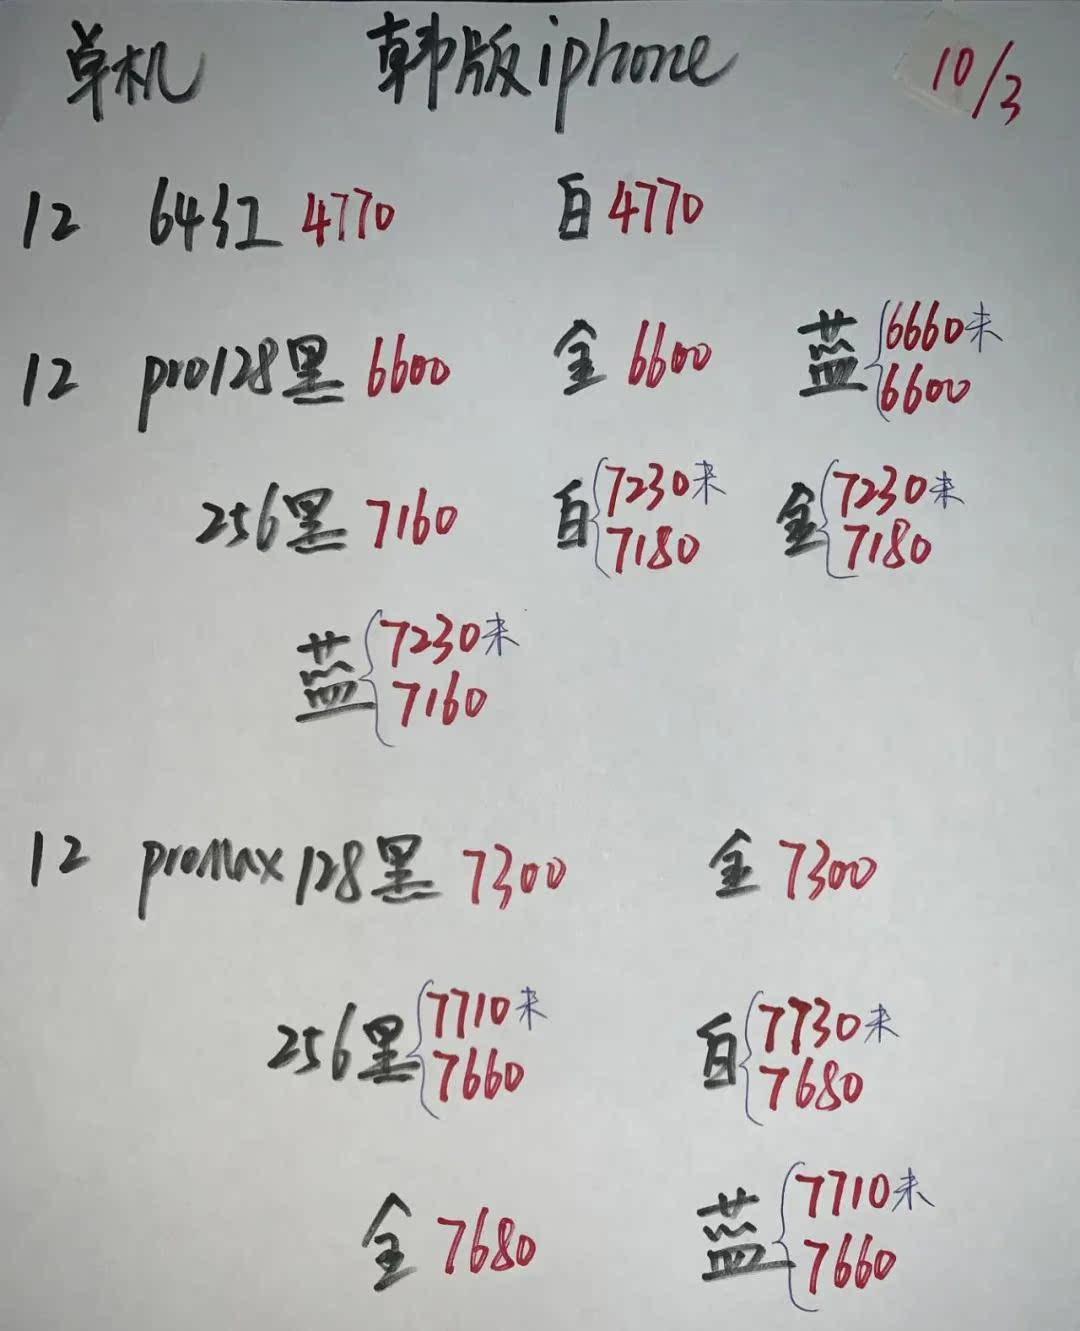 单机 韩版iphone 10/3
12 64红 4770 白 4770
12 pro128黑 6600 金 6600 蓝 6660未
6600
256黑 7160 白 7230未 金 7230未
7180 7180
蓝 7230未
7160
12 proMax 128黑 7300 金 7300
256黑 7710未 白 7730未
7660 7680
金 7680 蓝 7710未
7660